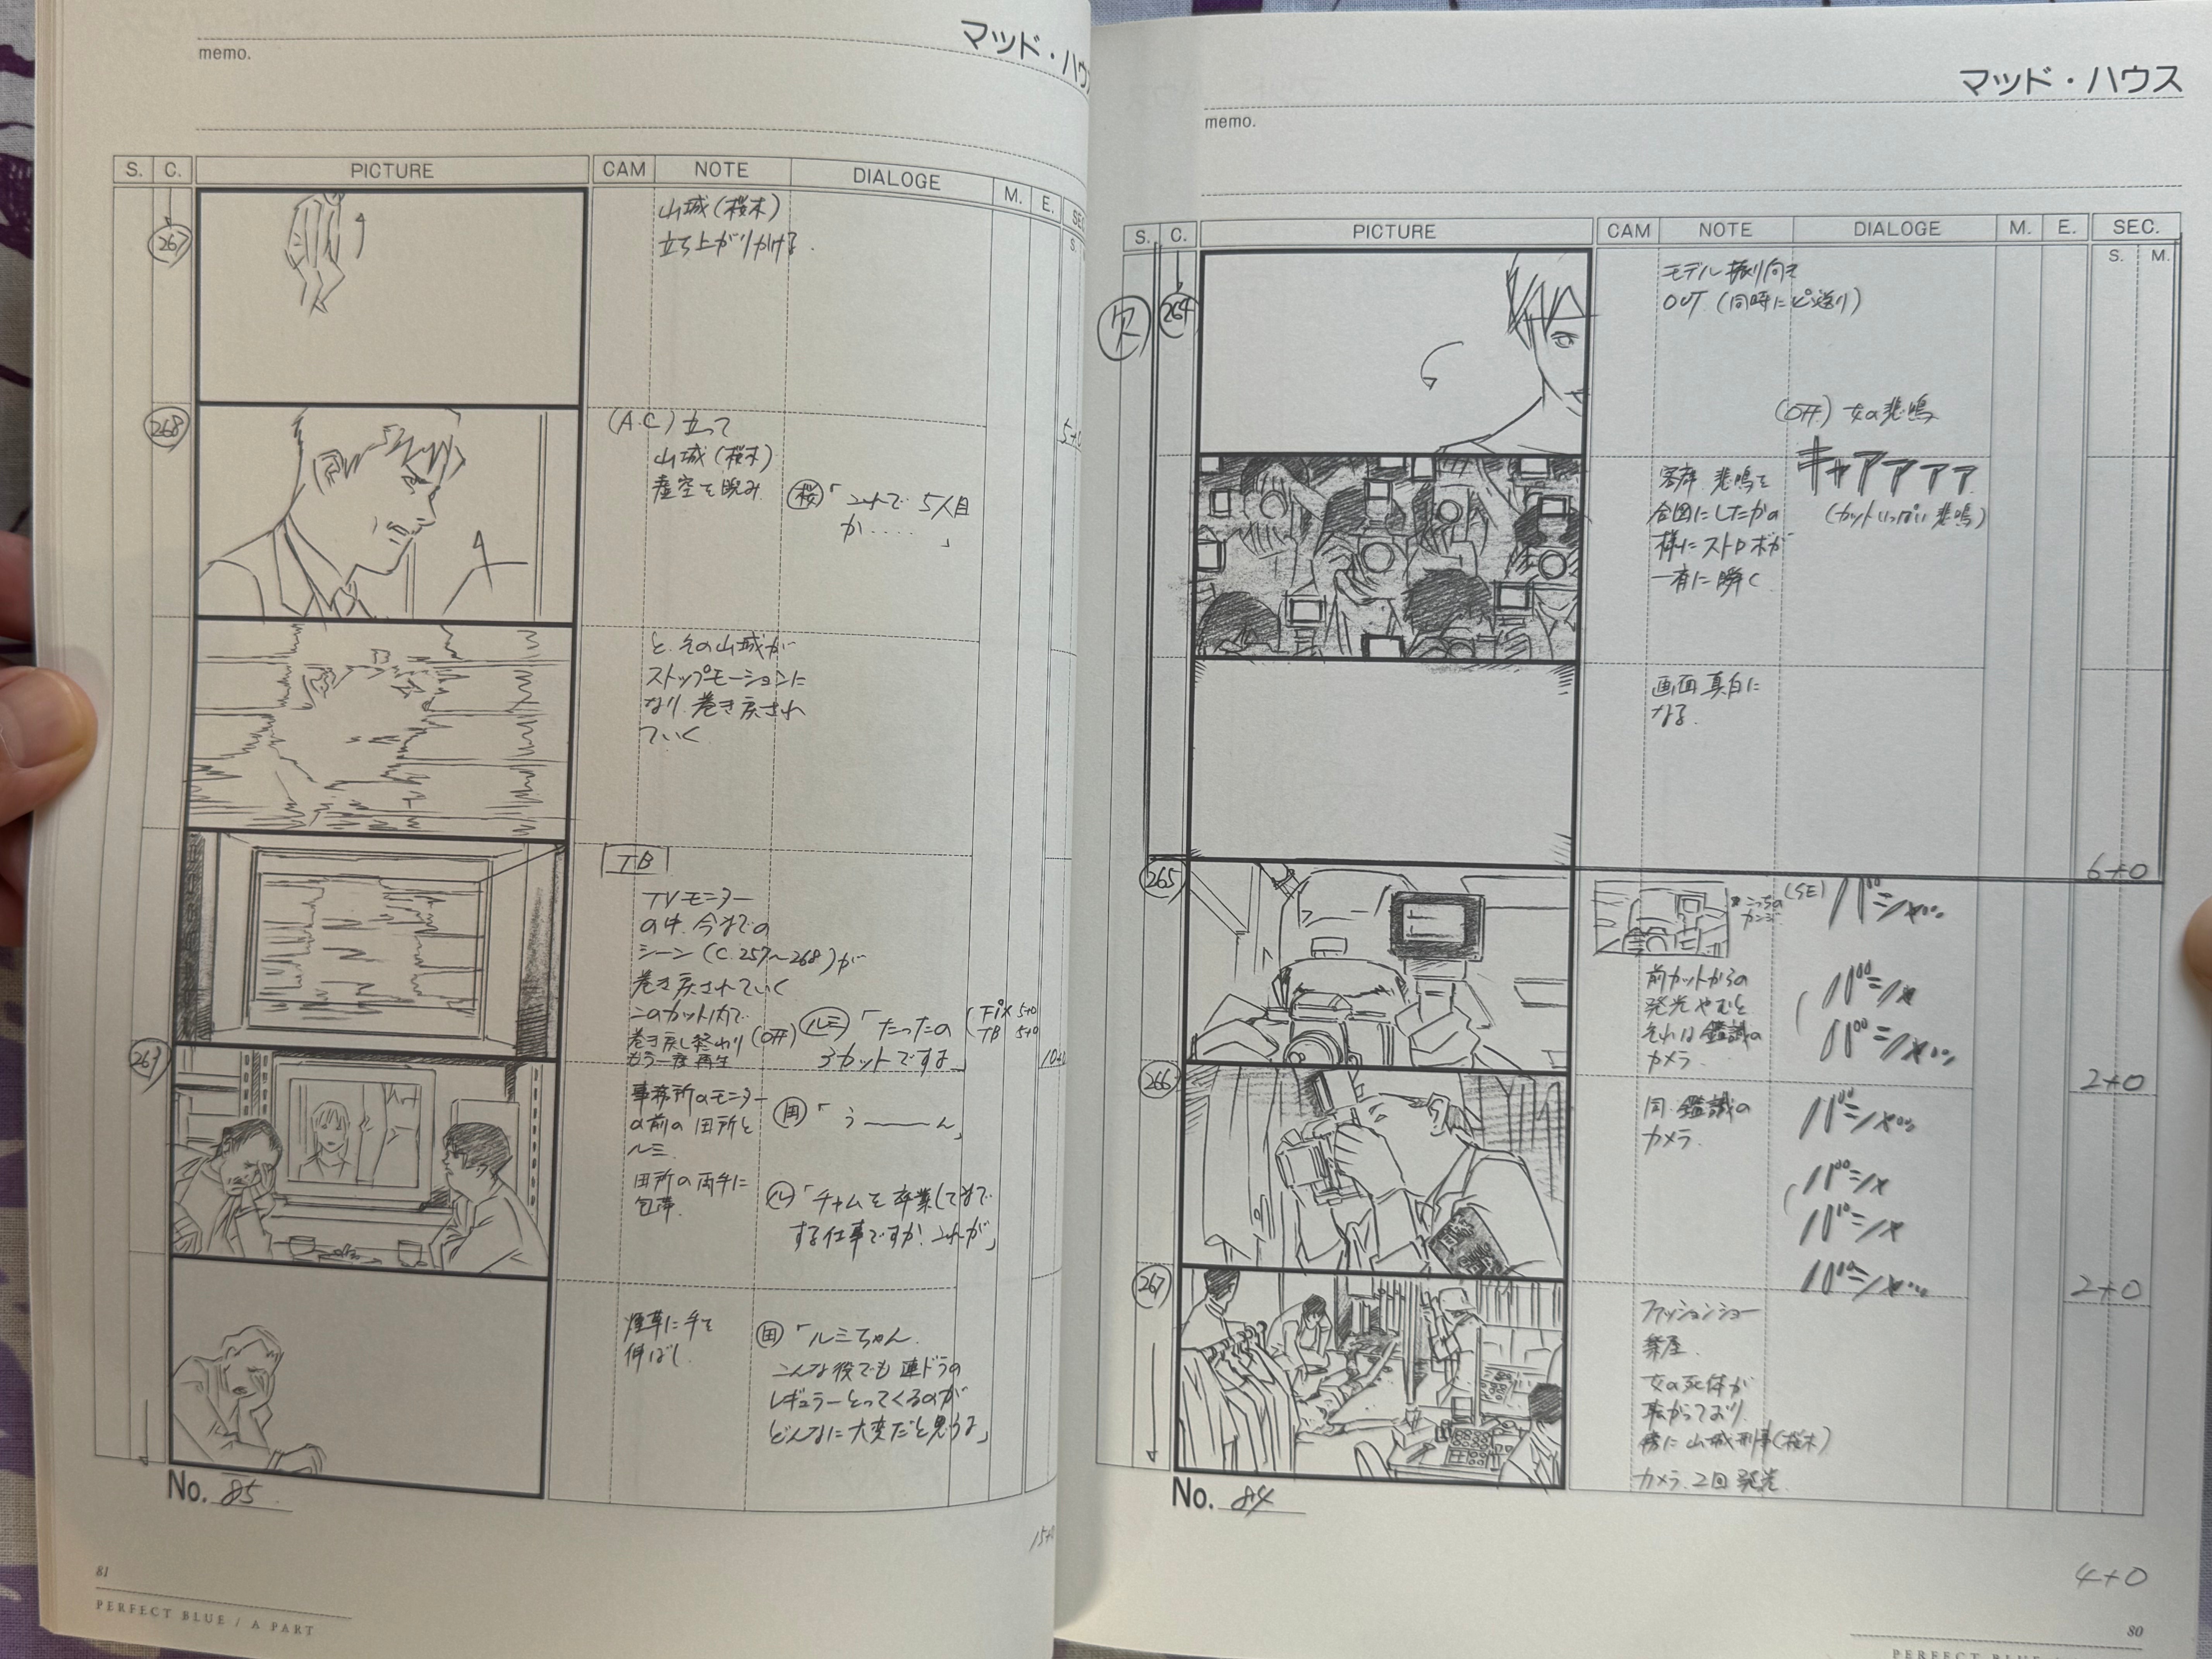 マッド・ハウス
memo.
S. C. PICTURE CAM NOTE DIALOGE M. E. SEC.
S. M.
欠
264
モデル振り向き
OUT (同時にピン送り)
(OFF) 女の悲鳴
キャアアアア
(カットいっぱい悲鳴)
客席 悲鳴を
合図にしたかの
様にストロボが
一斉に瞬く
画面真白に
なる.
6+0
265
* こっちの
カンジ
(SE) バシャッ…
前カットからの
発光やむと
それは鑑識の
カメラ.
バシャ
バシャッ…
2+0
266
同・鑑識の
カメラ.
バシャッ…
バシャ
バシャ
バシャッ…
2+0
267
ファッションショー
楽屋.
女の死体が
転がっており
傍に山城刑事(桜木)
カメラ. 2回発光
No. 84
4+0
80
PERFECT BLUE
マッド・ハウ
memo.
S. C. PICTURE CAM NOTE DIALOGE M. E. SE
S.
267
山城(桜木)
立ち上がりかける.
5+0
268
(A.C) 立って
山城(桜木)
虚空を睨み
桜「これで 5人目
か‥‥」
と.その山城が
ストップモーションに
なり.巻き戻され
ていく
TB
TVモニター
の中.今までの
シーン(C.257〜268)が
巻き戻されていく
このカット内で
巻き戻し終わり
もう一度再生
(OFF) ルミ「たったの
3カットですよ」
(Fix 5+0
TB 5+0
10+
事務所のモニター
の前の田所と
ルミ.
田所の両手に
包帯.
田「う───ん」
ル「チャムを卒業してまで
する仕事ですか!これが」
煙草に手を
伸ばし.
田「ルミちゃん.
こんな役でも連ドラの
レギュラーとってくるのが
どんなに大変だと思うよ」
No. 85
15+
81
PERFECT BLUE / A PART